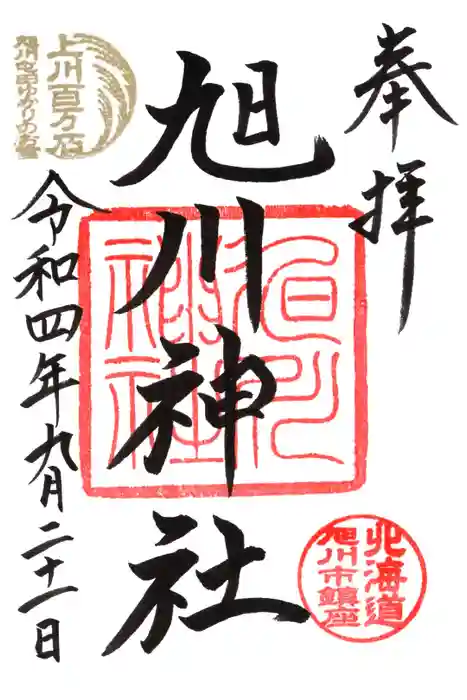 奉拝
旭川神社
旭川
神社
北海道
旭川市鎮座
上川百万石
令和四年九月二十一日